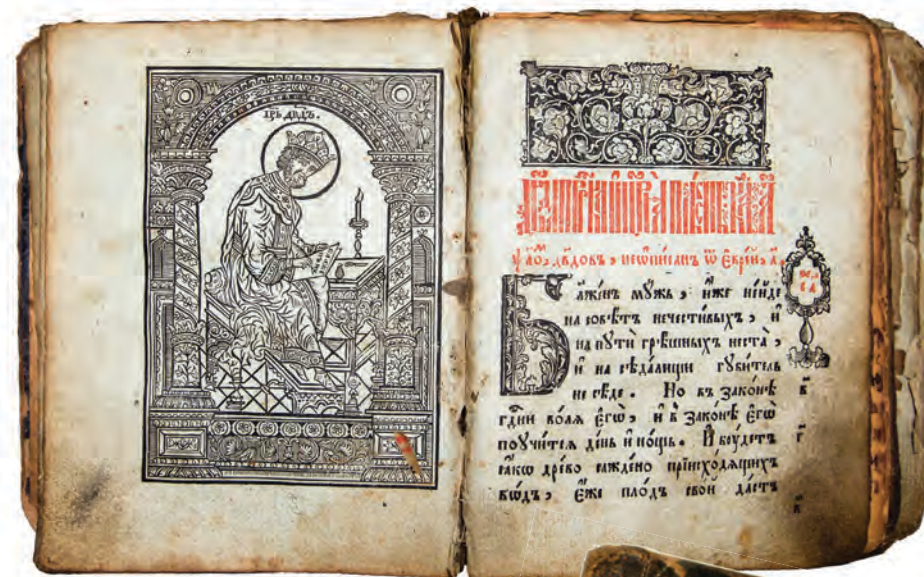 црь дв҃дъ.
дв҃довъ, не ѡ҆пи́санъ ѿ є҆врє́й, а҃.
Бл҃аже́нъ мꙋ́жь, и҆́же не и҆́де
на совѣ́тъ нечести́выхъ, и҆
на пꙋти̑ грѣ́шныхъ не ста̀,
и҆ на сѣда́лищи гꙋби́тель
не сѣ́де. Но въ зако́нѣ в҃
гдⷭ҇ни во́лѧ є҆гѡ̀, и҆ в̾ зако́нѣ є҆гѡ̀
поꙋчи́тсѧ де́нь и҆ но́щь. И҆ бꙋ́детъ г҃
ꙗ҆́кѡ дре́во сажде́но при и҆схо́дѧщихъ
во́дъ, є҆́же пло́дъ сво́й да́стъ